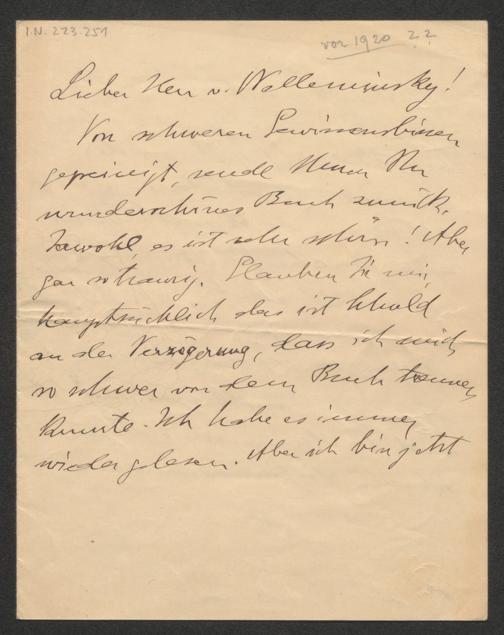 I.N. 223.251
vor 1920 ??
Lieber Herr v. Walleminsky!
Von schweren Gewissensbissen
gepeinigt, sende Ihnen Ihr
wunderschönes Buch zurück.
Jawohl, es ist sehr schön! Aber
gar so traurig. Glauben Sie mir,
hauptsächlich das ist Schuld
an der Verzögerung, dass ich mich
so schwer von dem Buch trennen
konnte. Ich habe es immer
wieder gelesen. Aber ich bin jetzt